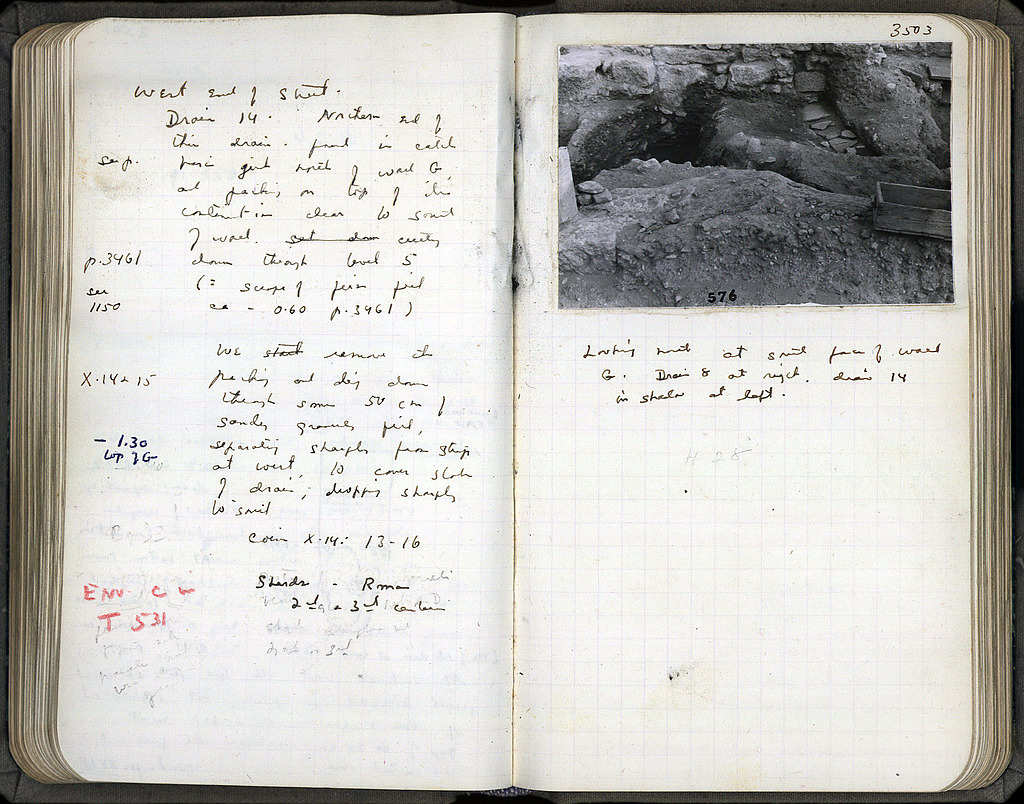 West end of Street.
Drain 14. Northern end of
this drain. found in catch
see p.
basin just north of wall G,
and packing on top of its
continuation clear to south
of wall. set down cutting
p. 3461
down through level 5
(=
see
1150
ca - 0.60 p. 3461)
We start remove the
X.14 & 15
packing and dig down
through some 50 cm of
sandy gravelly fill,
- 1.30
top of G
separating sharply from strip
at west, to cover slab
of drain; dropping sharply
to south
Coin X.14: 13-16
ENV. C in
T 531
Sherds - Roman
2nd & 3rd
3503
576
Looking north at south face of wall
G. Drain 8 at right. drain 14
in shadow at left.
H 28